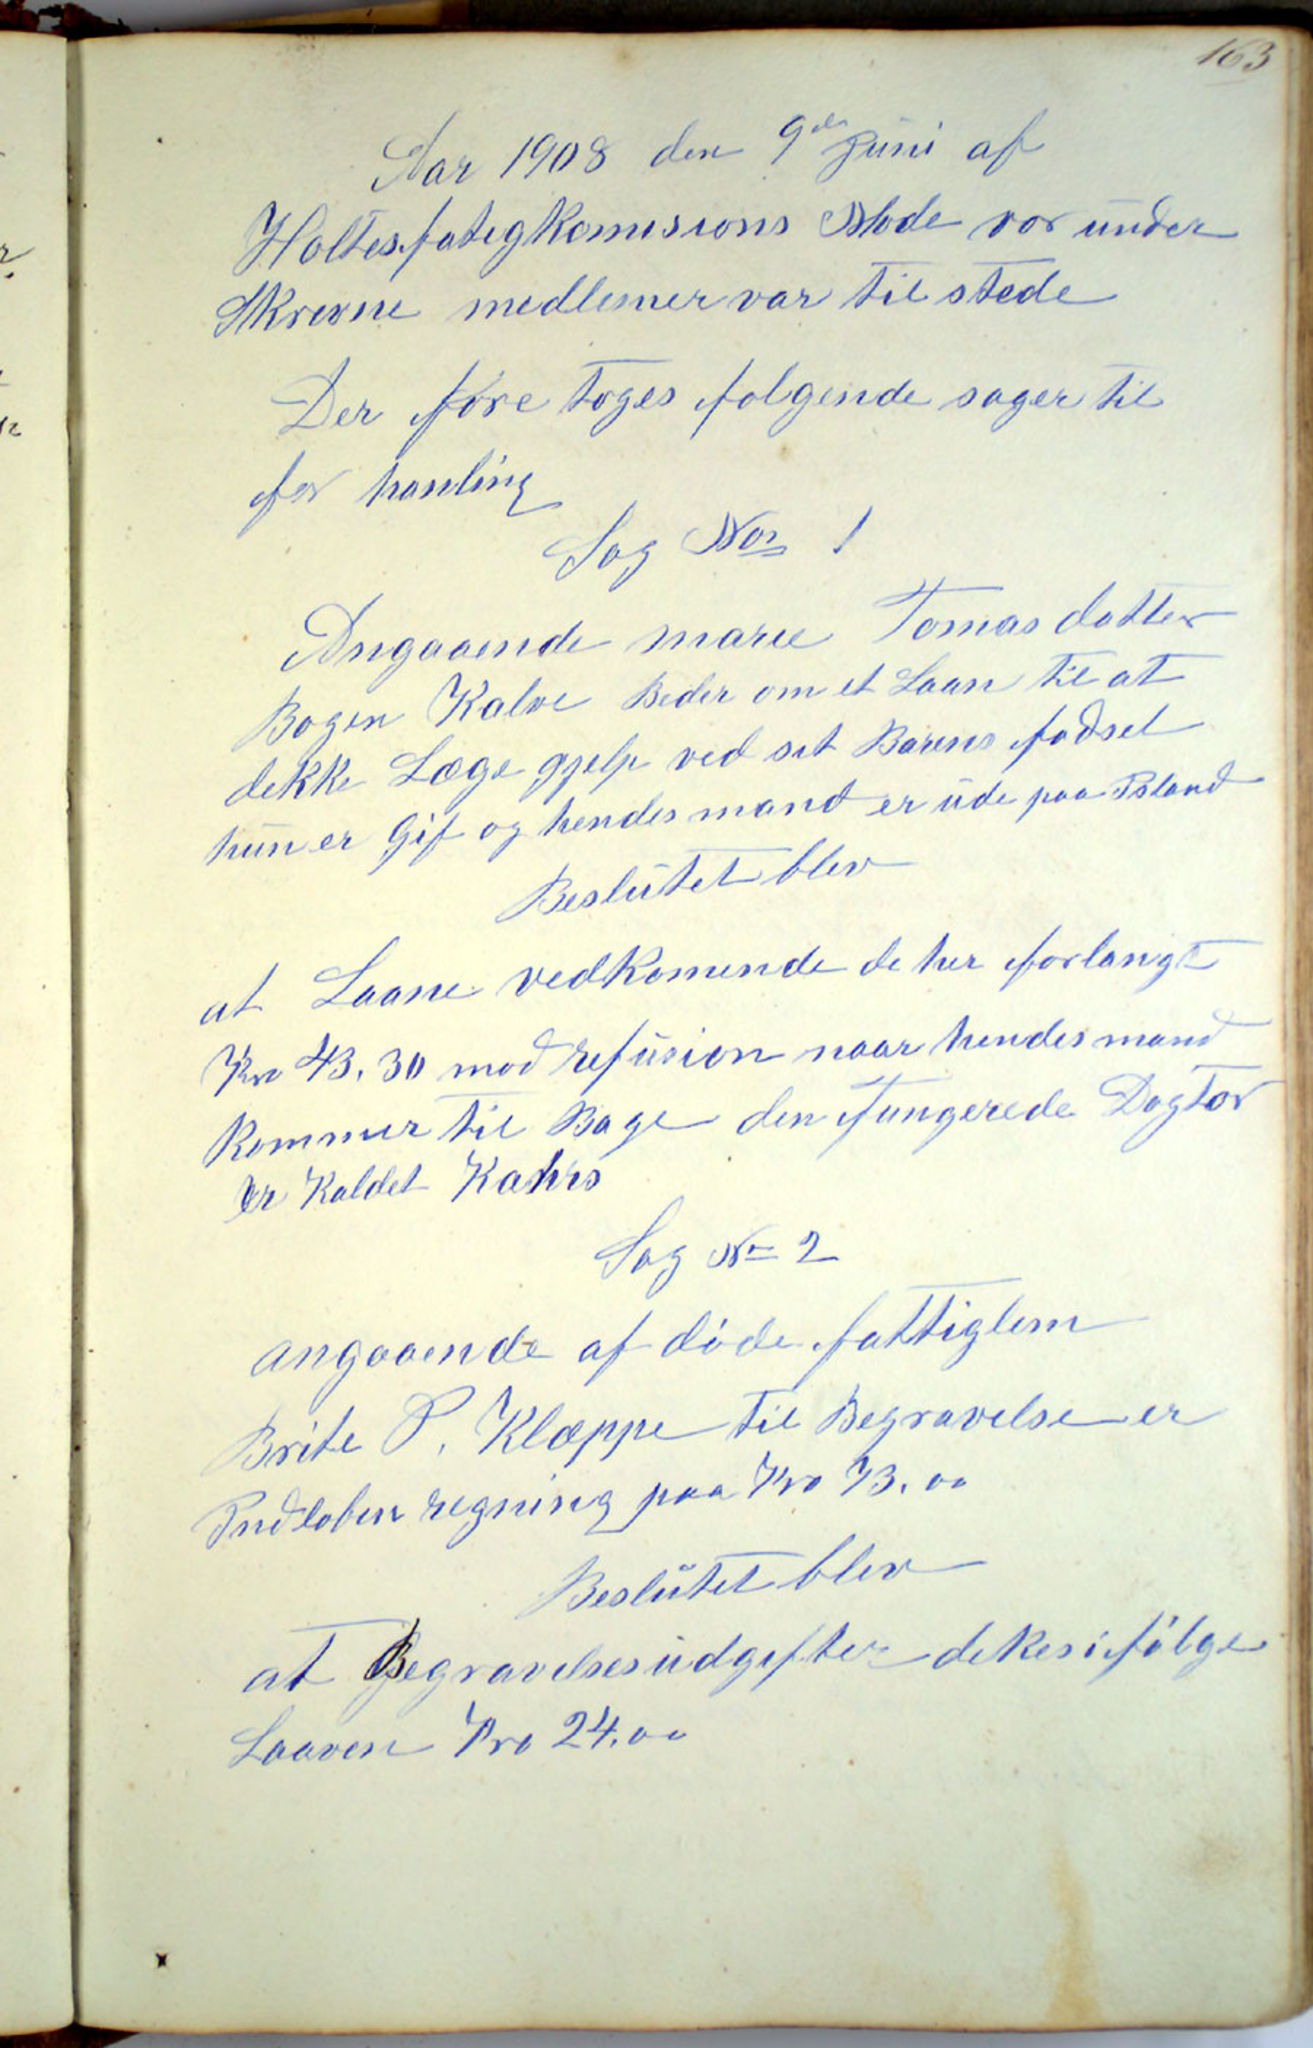 163
Aar 1908 den 9de Juni af
Holtesfatigkomisions Mode vor under
skrevne medlemer var til stede
Der føre toges folgende sager til
for hanling
Sag Nor 1
Angaaende marie Tomasdatter
Bogen Kalve Beder om et Laan til at
dekke Læge gjelp ved sit Barns fødsel
hun er Gif og hendes mand er ude paa Island
Beslutet blev
at Laane vedkomende de her forlangt
Kro 43.30 mod refusion naar hendes mand
kommer til Bage den fungerede Dogtor
er kaldet Kahrs
Sag No 2
angaaende af døde fattiglem
Brite P. Klæppe til Begravelse er
Indloben regning paa Kro 73.00
Beslutet blev
at Begravelsesudgifter dekes ifølge
Laaven Kro 24.00